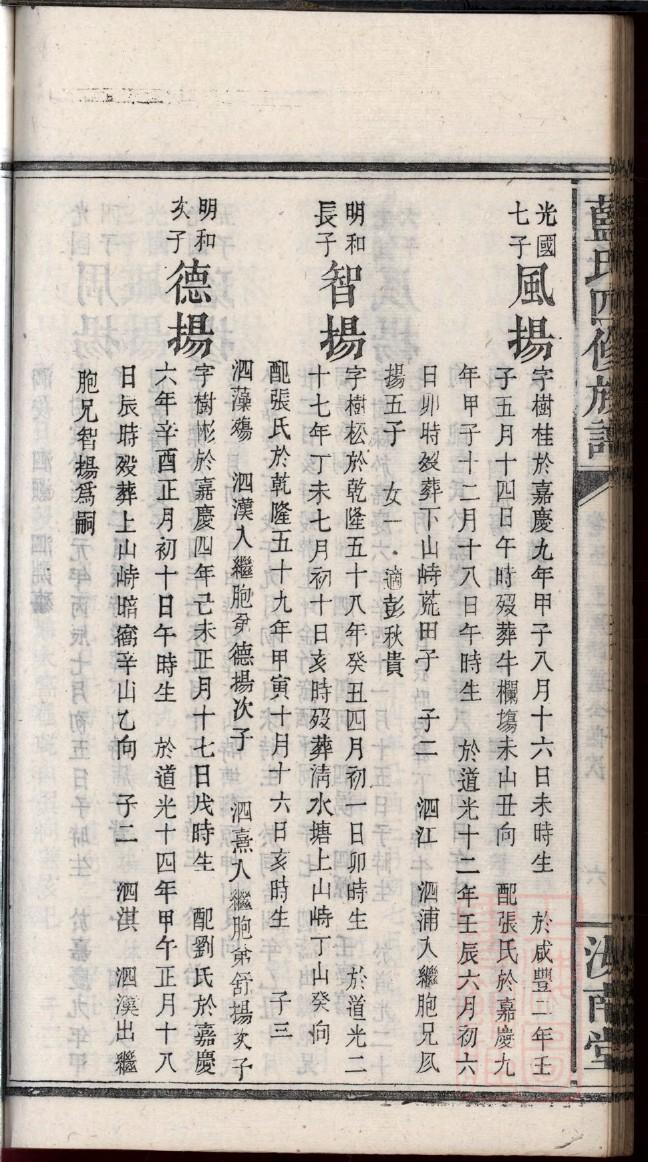 藍氏四修族譜
汝南堂
光國
七子
風揚
字樹桂於嘉慶九年甲子八月十六日未時生 於咸豐二年壬
子五月十四日午時殁葬牛欄塲未山丑向 配張氏於嘉慶九
年甲子十二月十八日午時生 於道光十二年壬辰六月初六
日卯時殁葬下山峙荒田子 子二 泗江 泗浦入繼胞兄凤
揚五子 女一 適彭秋貴
明和
長子
智揚
字樹松於乾隆五十八年癸丑四月初一日卯時生 於道光二
十七年丁未七月初十日亥時殁葬清水塘上山峙丁山癸向
配張氏於乾隆五十九年甲寅十月十六日亥時生 子三
泗藻殤 泗漢入繼胞弟德揚次子 泗熹入繼胞弟舒揚次子
明和
次子
德揚
字樹彬於嘉慶四年己未正月十七日戌時生 配劉氏於嘉慶
六年辛酉正月初十日午時生 於道光十四年甲午正月十八
日辰時殁葬上山峙暗窩辛山乙向 子二 泗淇 泗漢出繼
胞兄智揚爲嗣